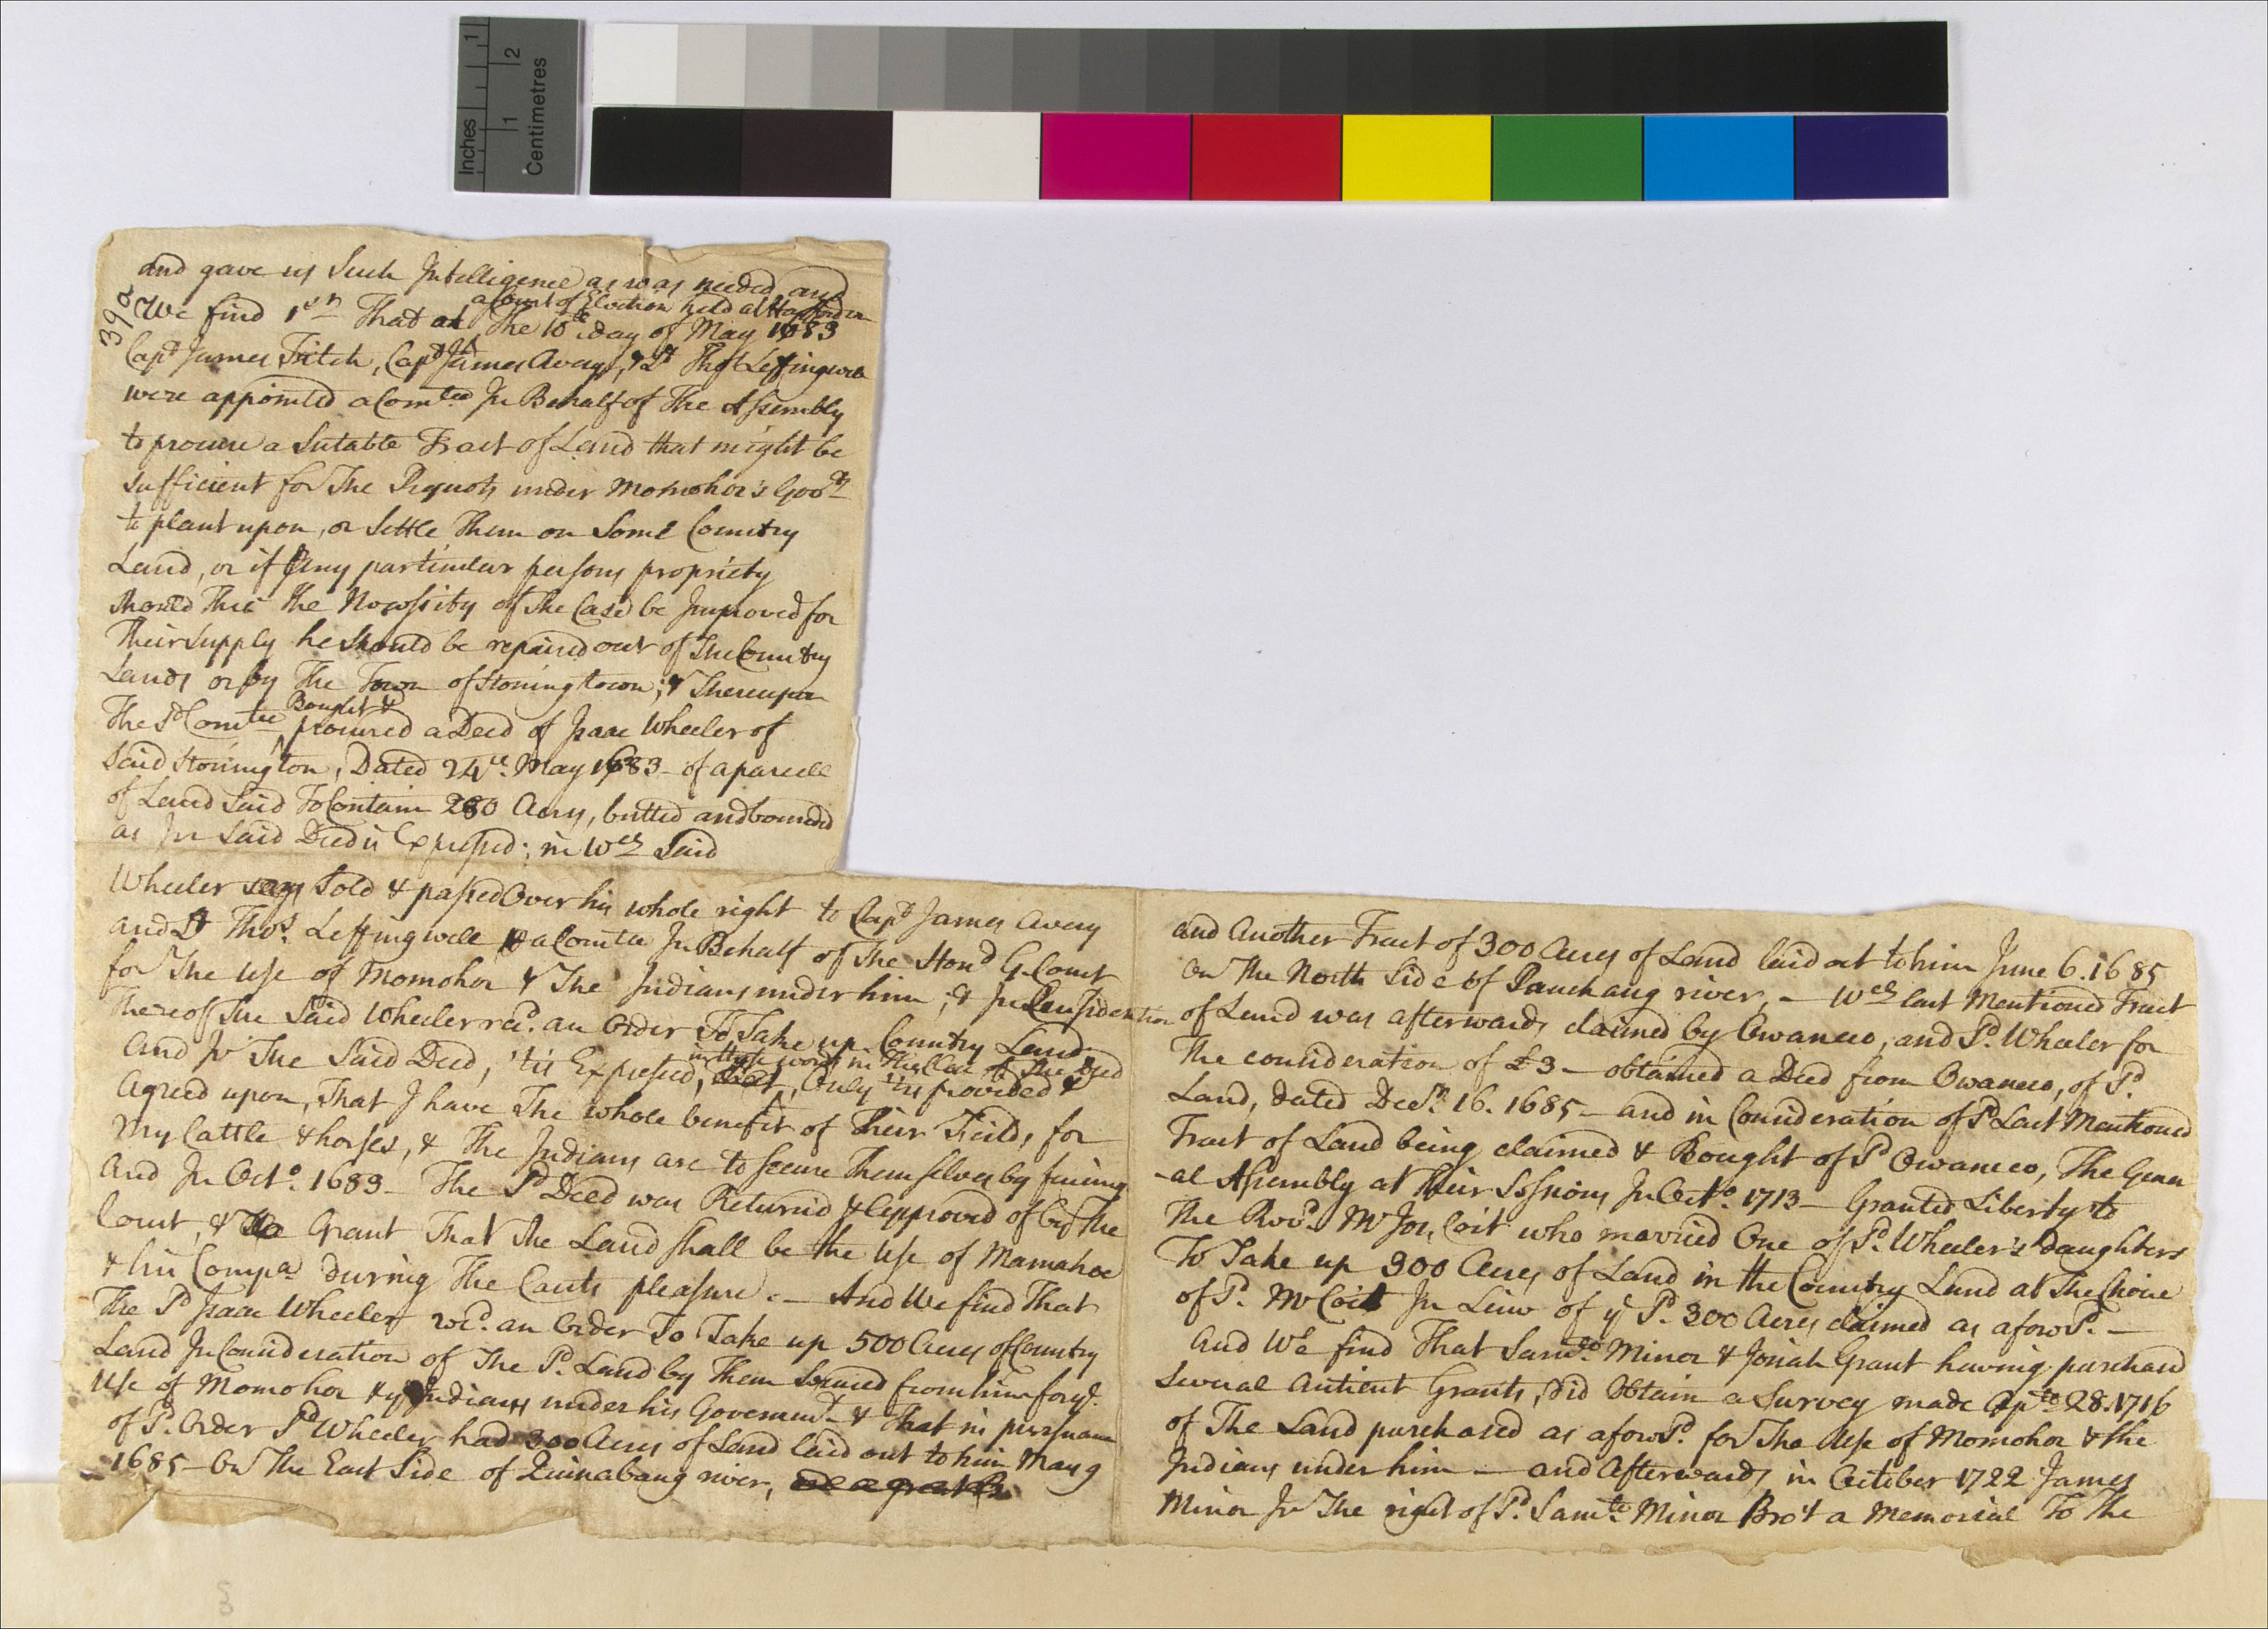 Inches 1
Centimetres 1 2
39a
and gave us Such Intelligence as was needed and
a Court of Election held at Hartford on
We find 1st. That the 10th Day of May 1683
Capt James Fitch, Capt James Avery, & Lt Thos Leffingwell
were appointed a Comtee In Behalf of The Assembly
to procure a Sutable Tract of Land that might be
Sufficient for The Pequots under Momohor's Govt.
to plant upon, or Settle Them on Some Country
Land, or if Any particular persons propriety
should Thro the Necessity of The Case be Improved for
Their Supply he Should be repaired out of The Country
Lands or by The Town of Stoningtown; & Thereupon
Bought &
The Sd Comtee procured a Deed of Isaac Wheeler of
said Stonington, Dated 24th. May 1683 - of a parcell
of Land Said To Contain 280 Acres, butted and bounded
as In Said Deed is Expressed; in Wch Said
Wheeler says Sold & passed Over his whole right to Capt James Avery
and Lt Thos. Leffingwell a Comtee In Behalf of The Hond G. Court
for The Use of Momohor & The Indians under him; & In Consideration
Thereof The Said Wheeler recd. an Order To Take up Country Land
in these words in the Close of The Deed
And In The Said Deed, 'tis Expressed, Only 'tis provided &
Agreed upon, That I have The whole benefit of Their Feilds, for
My Cattle & horses, & The Indians are to secure Themselves by fencing
And In Octo. 1683 - The Sd Deed was Returned & Approved of by The
Court, & Grant That The Land shall be the Use of Mamahoe
& his Compa. During The Courts pleasure. - And We find That
The Sd Isaac Wheeler recd. an Order To Take up 500 Acres of Country
Land In Consideration of The Sd. Land by Them Secured from him for ye.
Use of Momohor & ye Indians under his Goverment & That in pursuance
of Sd. Order Sd Wheeler had 300 Acres of Land laid out to him May 9
1685 - On The East Side of Quinabaug river,
and Another Tract of 300 Acres of Land laid out to him June 6. 1685
on The North Side of Pauchaug river, - Wch last Mentioned Tract
of Land was afterwards claimed by Owaneco, and Sd. Wheeler for
The consideration of £3 - obtained a Deed from Owaneco, of Sd
Land, dated Decr. 16. 1685 - and in Consideration of Sd Last Mentioned
Tract of Land being claimed & Bought of Sd Owaneco, The Gener
-al Assembly at their Sessions In Octo. 1713 - Granted Liberty to
The Revd. Mr Jos. Coit who married One of Sd. Wheeler's Daughters
To Take up 300 Acres of Land in the Country Land at The Choice
of Sd. Mr Coit In Lieu of ye Sd. 300 Acres claimed as aforesd. -
And We find That Samll. Minor & Josiah Grant having purchased
Several Antient Grants, did Obtain a Survey made Apll. 28. 1716
of The Land purchased as aforesd. for The Use of Momohor & the
Indians under him - and Afterwards in October 1722 James
Minor In The right of Sd. Samll. Minor Bro't a Memorial To The